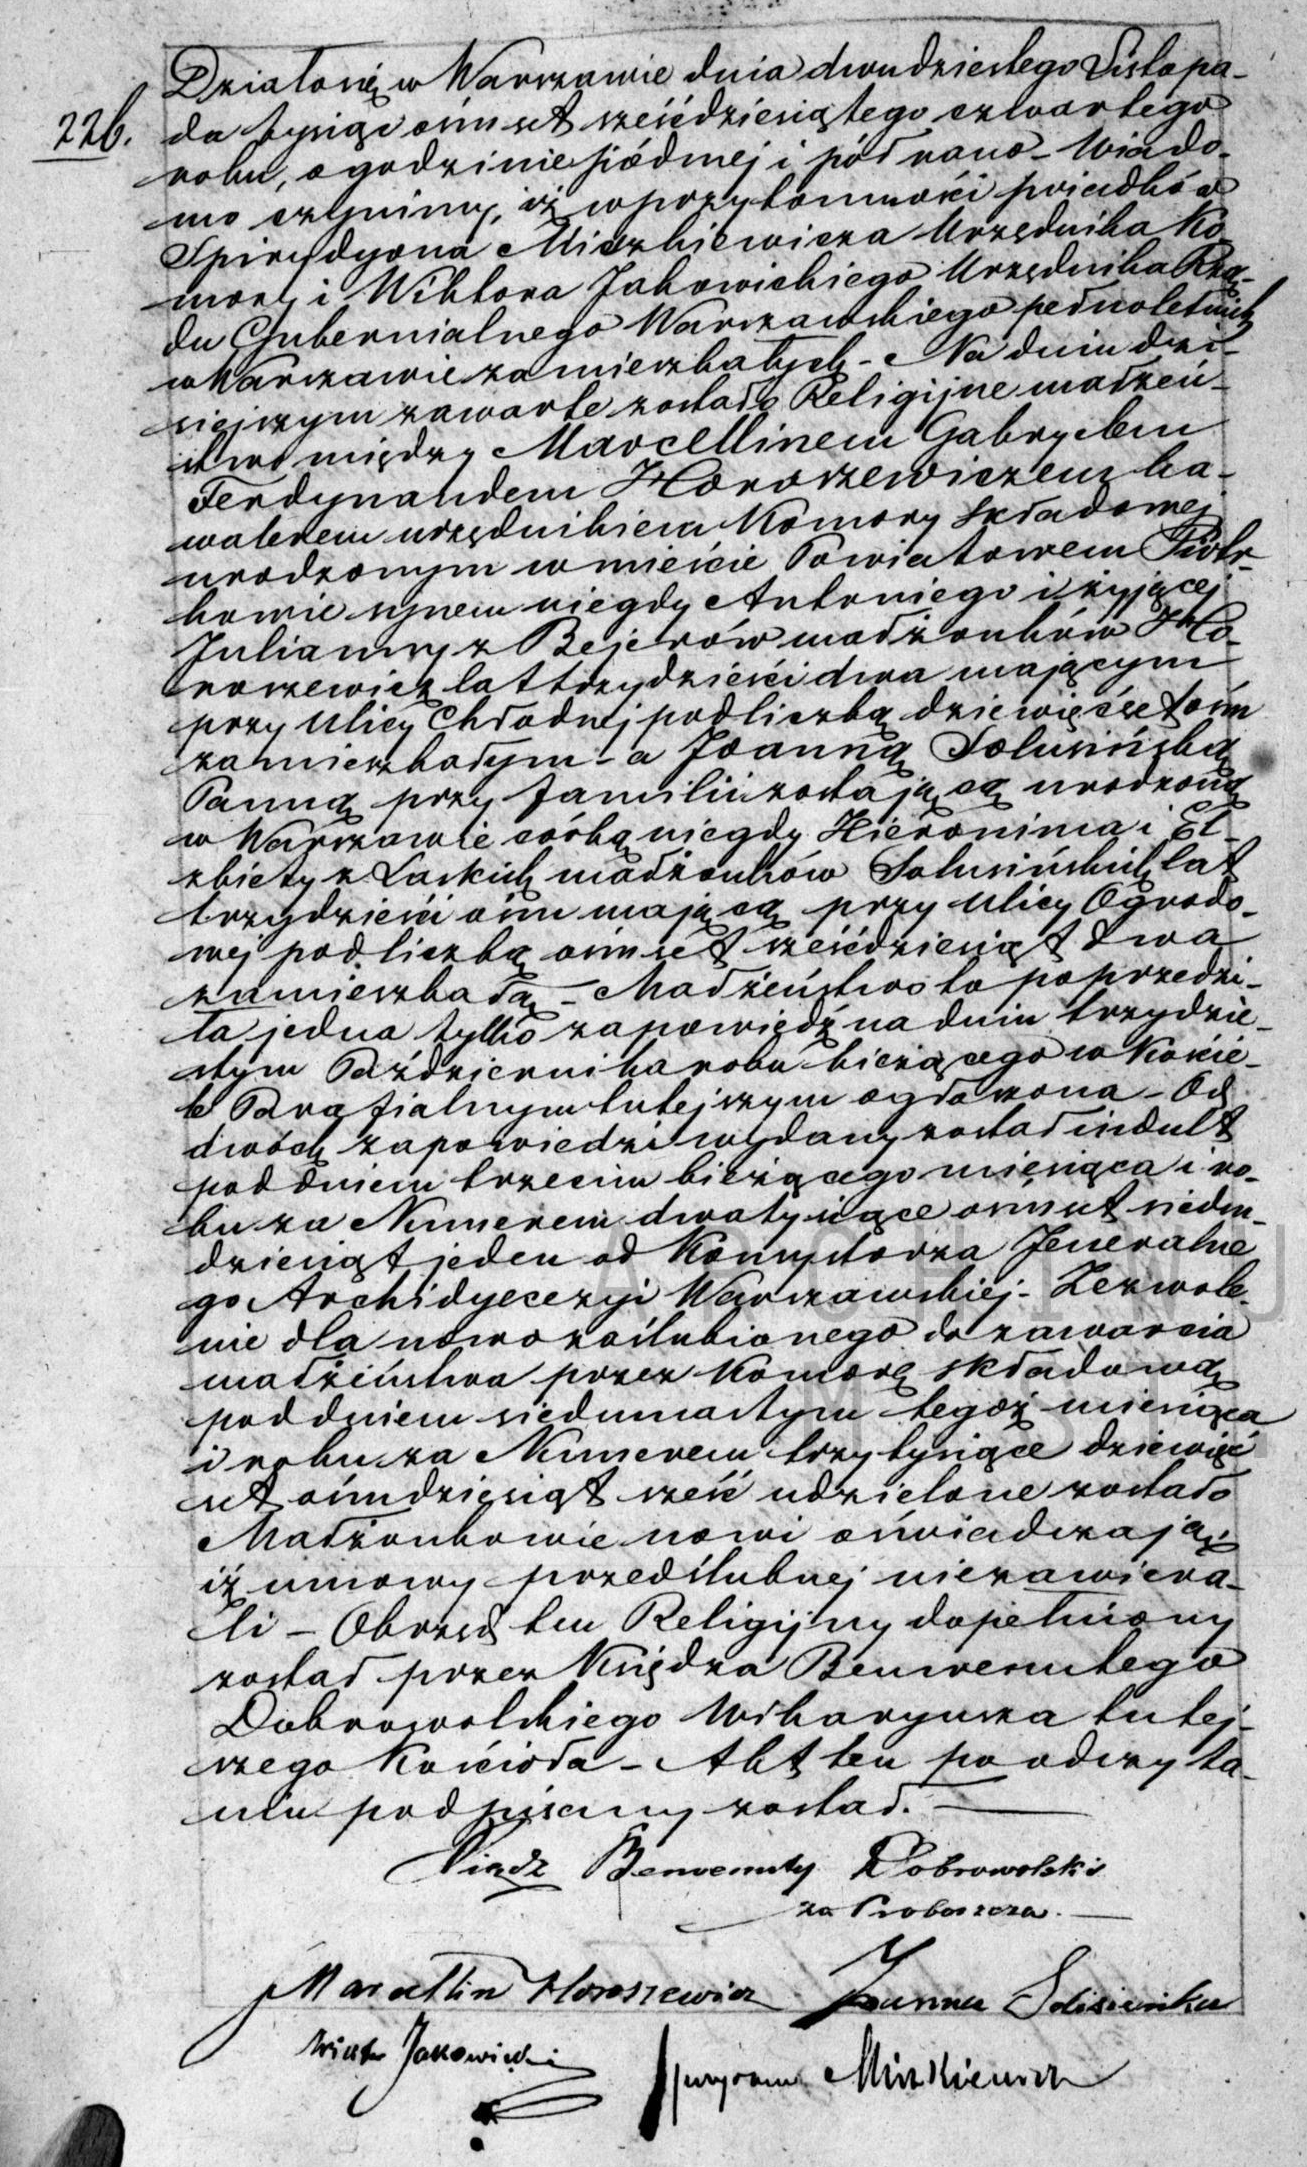 226.
Działo się w Warszawie dnia dwudziestego Listopa-
da tysiąc ośmset sześćdziesiątego czwartego
roku, o godzinie siódmej i pół rano – Wiado-
mo czynimy, iż w przytomności świadków
Spirydyona Miszkiewicza Urzędnika Ko-
mory i Wiktora Jakowickiego Urzędnika Rzą-
du Gubernialnego Warszawskiego pełnoletnich
w Warszawie zamieszkałych – Na dniu dzi-
siejszym zawarte zostało Religijne małżeń-
stwo między Marcellinem Gabryelem
Ferdynandem Horoszewiczem ka-
walerem urzędnikiem Komory Składowej
urodzonym w mieście Powiatowem Piotr-
kowie synem niegdy Antoniego i żyjącej
Julianny z Bejerów małżonków Ho-
roszewicz lat trzydzieści dwa mającym
przy ulicy Chłodnej pod liczbą dziewięćset ośm
zamieszkałym – a Joanną Solusińską
Panną przy familii zostającą urodzoną
w Warszawie córką niegdy Hieronima i El-
żbiety z Laskich małżonków Solusińskich lat
trzydzieści ośm mającą przy ulicy Ogrodo-
wej pod liczbą ośmset sześćdziesiąt dwa
zamieszkałą – Małżeństwo to poprzedzi-
ła jedna tylko zapowiedź na dniu trzydzie-
stym Października roku bieżącego w Kościé-
le Parafialnym tutejszym ogłoszona – Od
dwóch zapowiedzi wydany został indult
pod dniem trzecim bieżącego miesiąca i ro-
ku za Numerem dwa tysiące ośmset siedm-
dziesiąt jeden od Konsystorza Jeneralne-
go Archidyecezyi Warszawskiej – Zezwole-
nie dla nowozaślubionego do zawarcia
małżeństwa przez Komorę składową
pod dniem siedmnastym tegoż miesiąca
i roku za Numerem trzy tysiące dziewięć
set ośmdziesiąt sześć udzielone zostało
Małżonkowie nowi oświadczają
iż umowy przedślubnej niezawiera-
li – Obrzęd ten Religijny dopełniony
został przez Księdza Benwenutego
Dobrowolskiego Wikaryusza tutej-
szego Kościoła – Akt ten po odczyta-
niu podpisany został.
Xiądz Benvenuty Dobrowolski
za Proboszcza.
Marcellin Horoszewicz Joanna Solisinska
Wiktor Jakowicki
Miszkiewicz
ARCHIWU
M ST